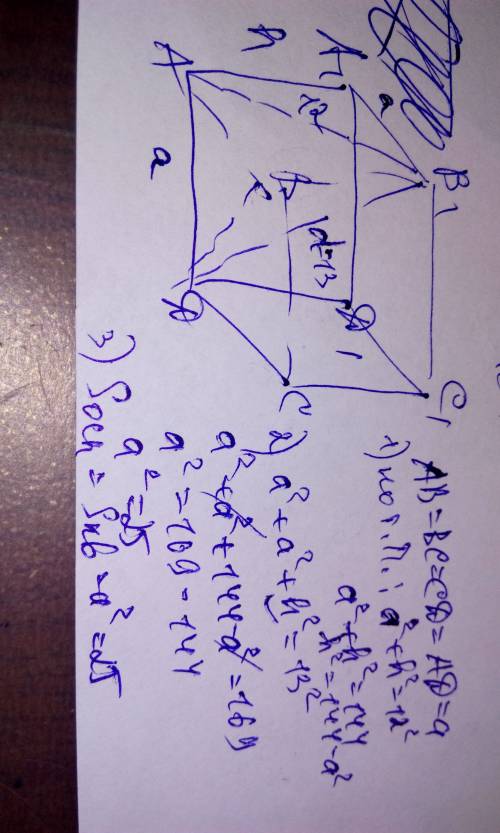 A₁
B₁
C₁
D₁
A
B
C
D
a
h
12
a
d=13
AB=BC=CD=AD=a
1) по т. П.: a²+h²=12²
a²+h²=144
h²=144-a²
2) a²+a²+h²=13²
a²+a²+144-a²=169
a²=169-144
a²=25
3) Sосн=Sкв=a²=25